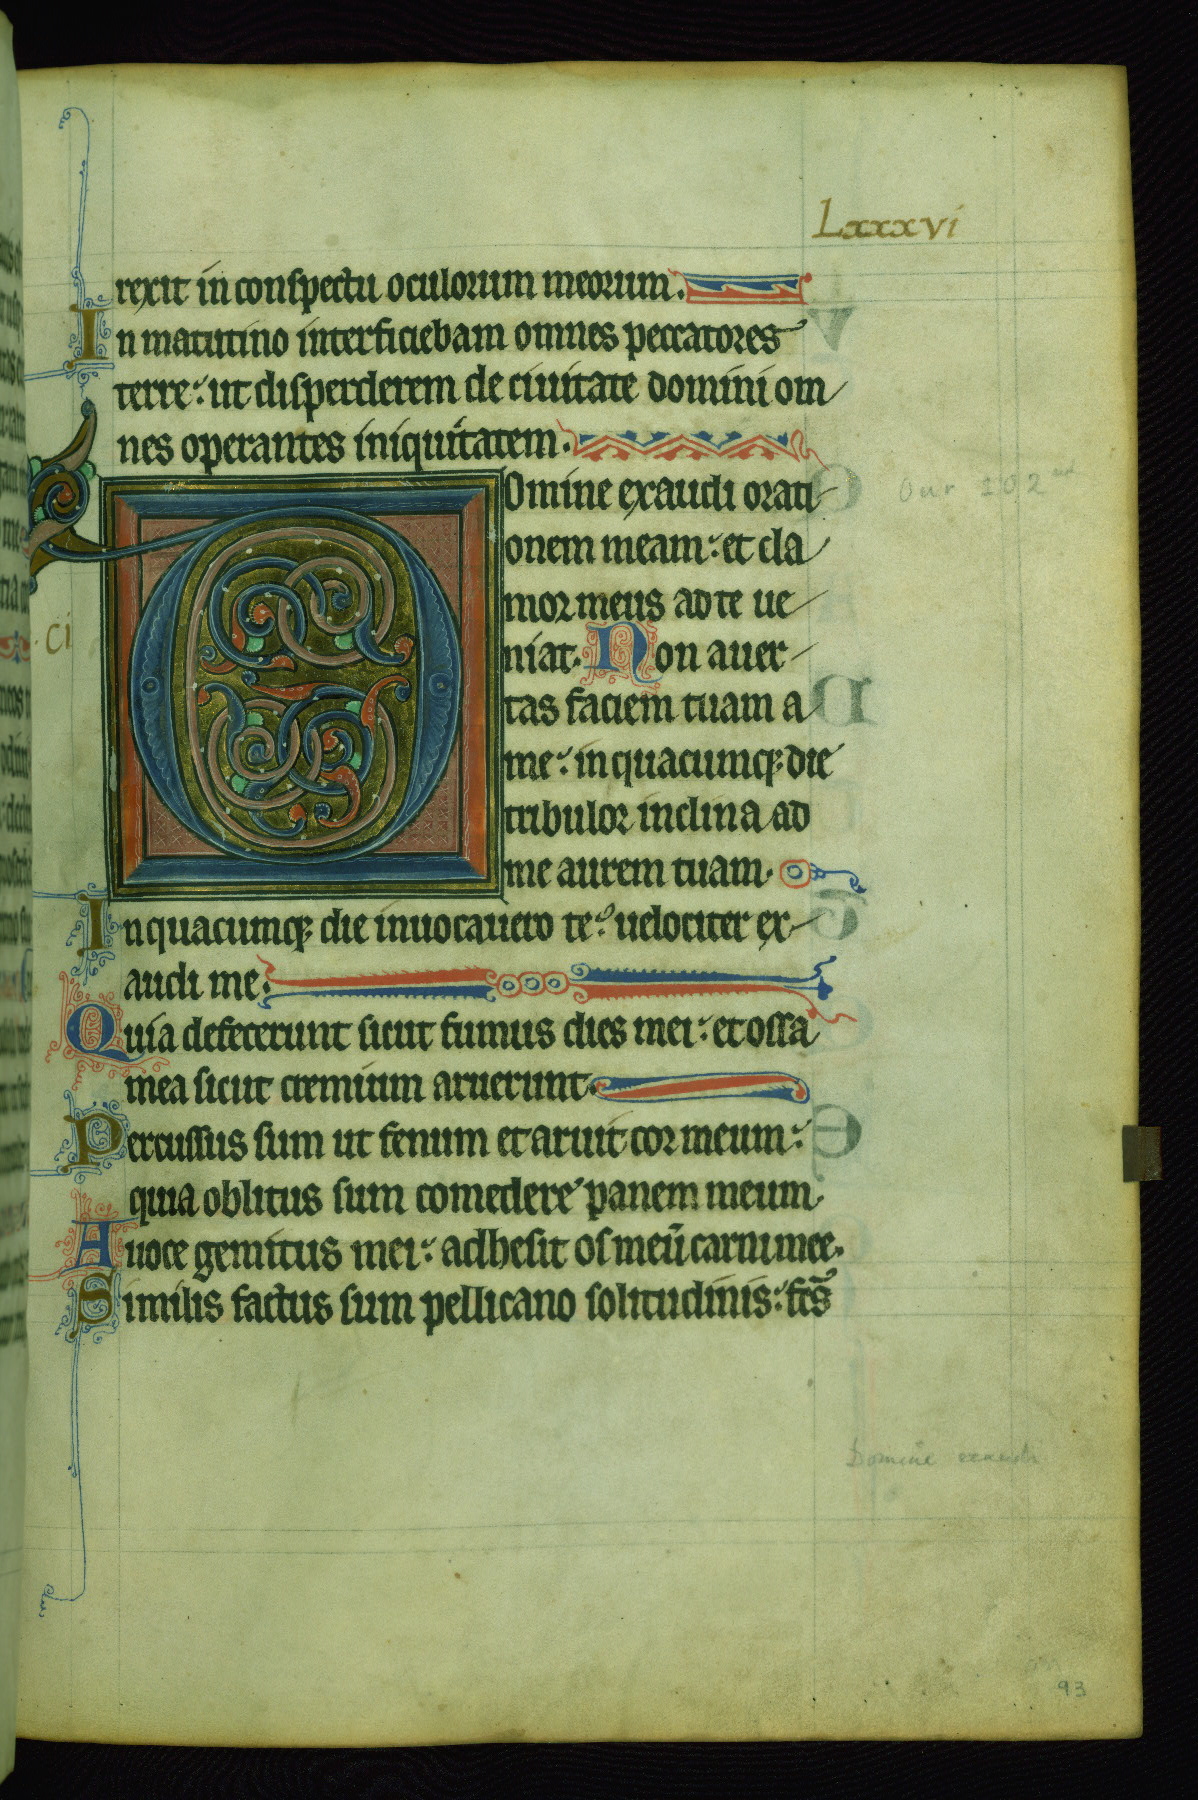 Lxxxvi
rexit in conspectu oculorum meorum.
In matutino interficiebam omnes peccatores
terre: ut disperderem de ciuitate domini om
nes operantes iniquitatem.
Omine exaudi orati
Our 102nd
onem meam: et cla
mor meus ad te ue
niat. Non auer
.Ci
tas faciem tuam a
me: in quacumq; die
tribulor inclina ad
me aurem tuam.
In quacumq; die inuocauero te: uelociter ex
audi me.
Quia defecerunt sicut fumus dies mei: et ossa
mea sicut cremium aruerunt.
Percussus sum ut fenum et aruit cor meum:
quia oblitus sum comedere panem meum.
A uoce gemitus mei: adhesit os meū carni mee.
Similis factus sum pellicano solitudinis: fc̄s
Domine exaudi
93